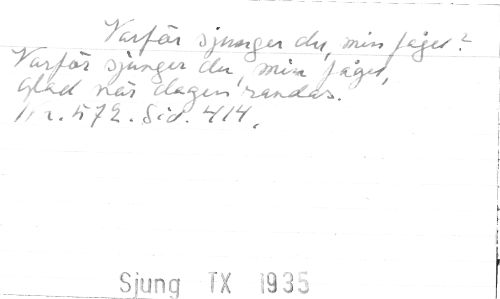 Varför sjunger du, min fågel?
Varför sjunger du, min fågel,
glad när dagen randas.
Nr. 572. Sid. 414.
Sjung TX 1935